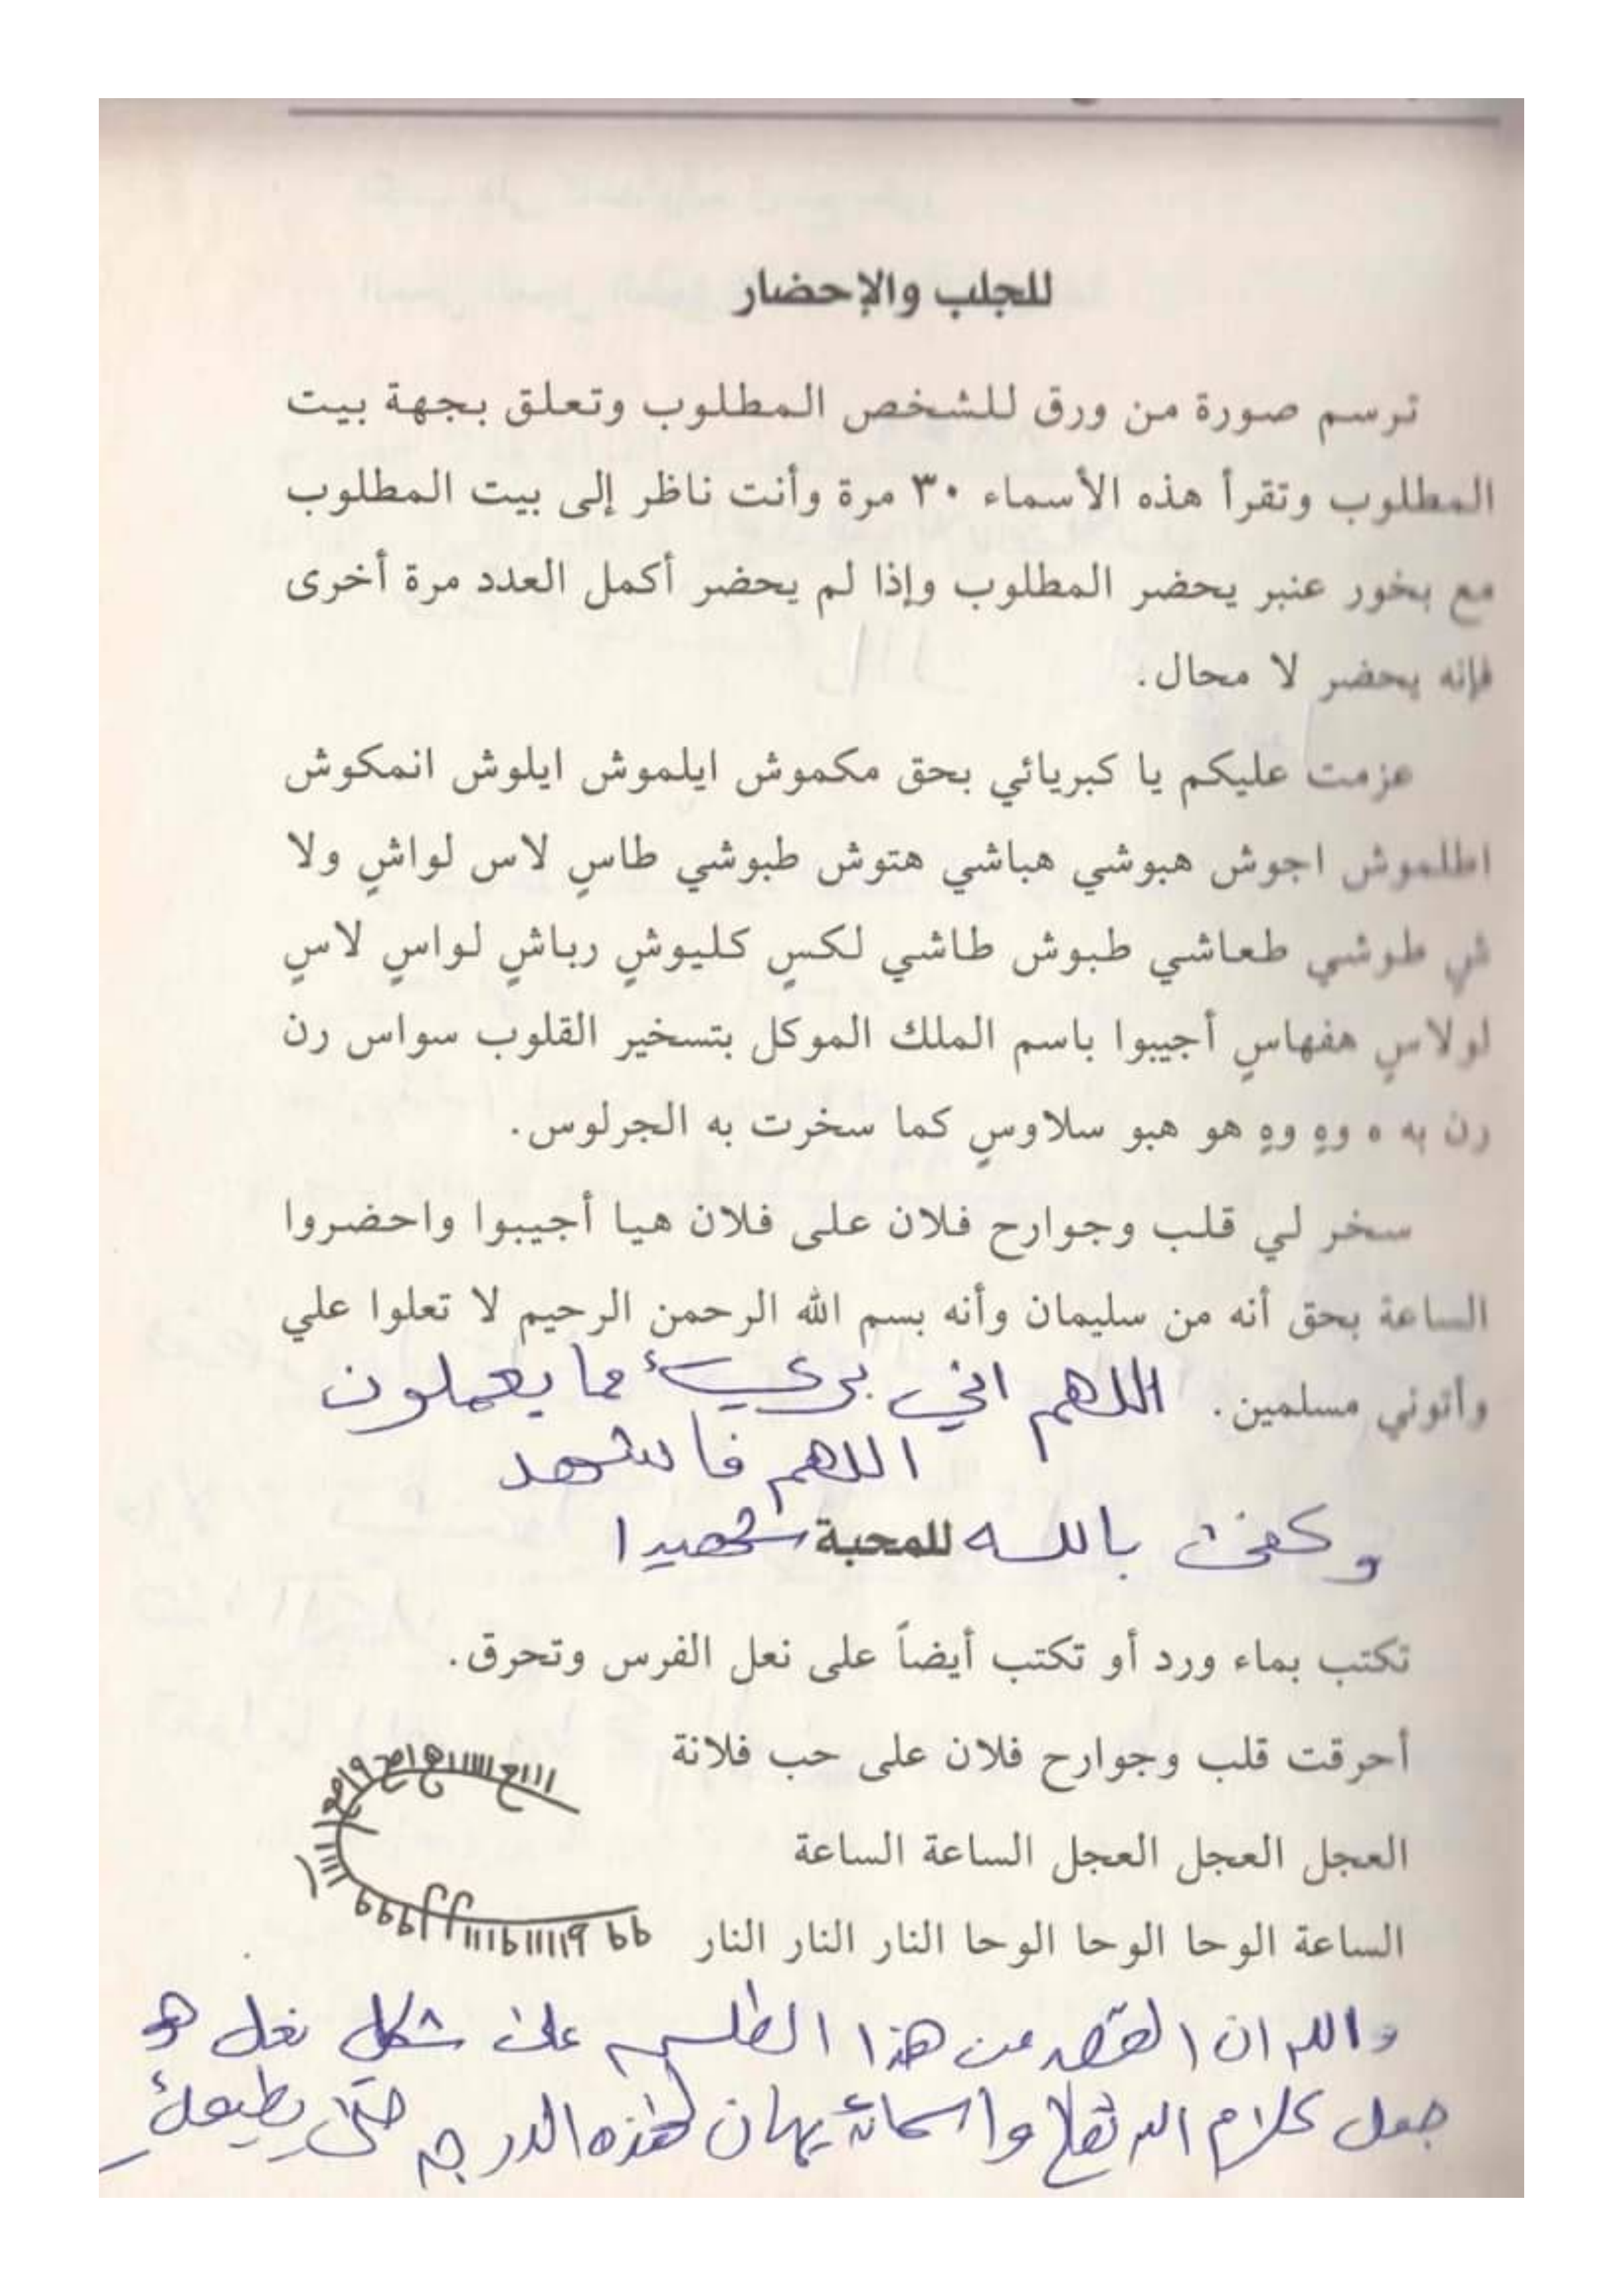 للجلب والإحضار
ترسم صورة من ورق للشخص المطلوب وتعلق بجهة بيت
المطلوب وتقرأ هذه الأسماء ٣٠ مرة وأنت ناظر إلى بيت المطلوب
مع بخور عنبر يحضر المطلوب وإذا لم يحضر أكمل العدد مرة أخرى
فإنه يحضر لا محال.
عزمت عليكم يا كبريائي بحق مكموش ايلموش ايلوش انمكوش
اطلموش اجوش هبوشي هباشي هتوش طبوشي طاسٍ لاس لواشٍ ولا
شي طوشي طعاشي طبوش طاشي لكسٍ كليوشٍ رباشٍ لواسٍ لاسٍ
لولاسٍ هفهاسٍ أجيبوا باسم الملك الموكل بتسخير القلوب سواس رن
رن به ه وهٍ وهٍ هو هبو سلاوسٍ كما سخرت به الجرلوس.
سخر لي قلب وجوارح فلان على فلان هيا أجيبوا واحضروا
الساعة بحق أنه من سليمان وأنه بسم الله الرحمن الرحيم لا تعلوا علي
وأتوني مسلمين. اللهم اني بريء مما يعملون
اللهم فاشهد
وكفى بالله للمحبة شهيدا
تكتب بماء ورد أو تكتب أيضاً على نعل الفرس وتحرق.
أحرقت قلب وجوارح فلان على حب فلانة
العجل العجل العجل الساعة الساعة
الساعة الوحا الوحا الوحا النار النار النار
والله ان القصد من هذا الطلسم على شكل نعل هو
جعل كلام الله تعالى واسمائه يهان لهذه الدرجه حتى يطيعك